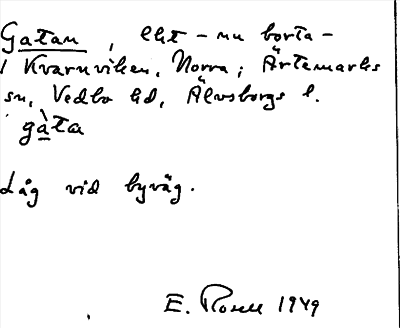 Gatan, lht - nu borta -
i Kvarnviken, Norra; Ärtemarks
sn, Vedbo hd, Älvsborgs l.
gàta
Låg vid byväg.
E. Rosell 1949